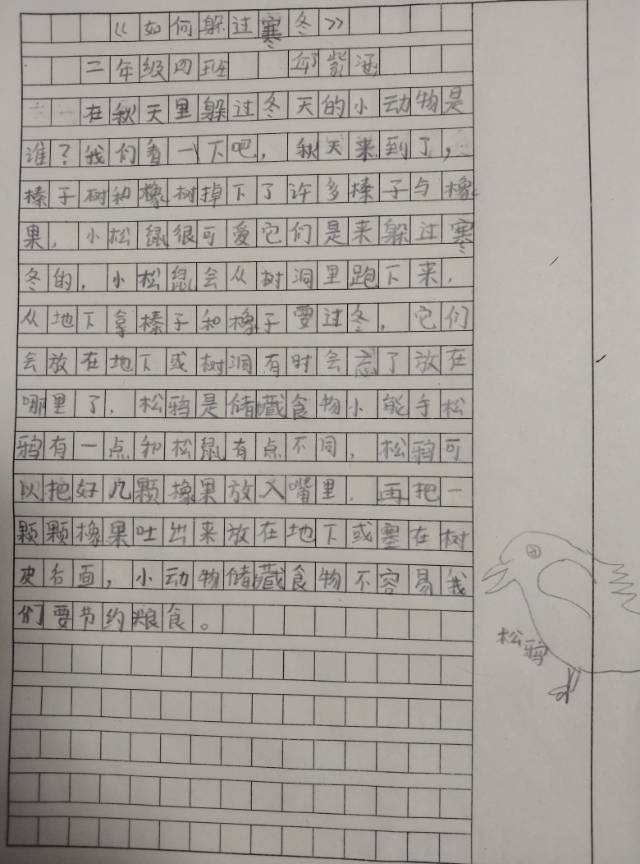 《如何躲过寒冬》
二年级四班 邱紫涵
在秋天里躲过冬天的小动物是
谁？我们看一下吧，秋天来到了，
榛子树和橡树掉下了许多榛子与橡
果，小松鼠很可爱它们是来躲过寒
冬的，小松鼠会从树洞里跑下来，
从地下拿榛子和橡子要过冬，它们
会放在地下或树洞有时会忘了放在
哪里了，松鸦是储藏食物小能手松
鸦有一点和松鼠有点不同，松鸦可
以把好几颗橡果放入嘴里，再把一
颗颗橡果吐出来放在地下或塞在树
皮后面，小动物储藏食物不容易我
们要节约粮食。
松鸦